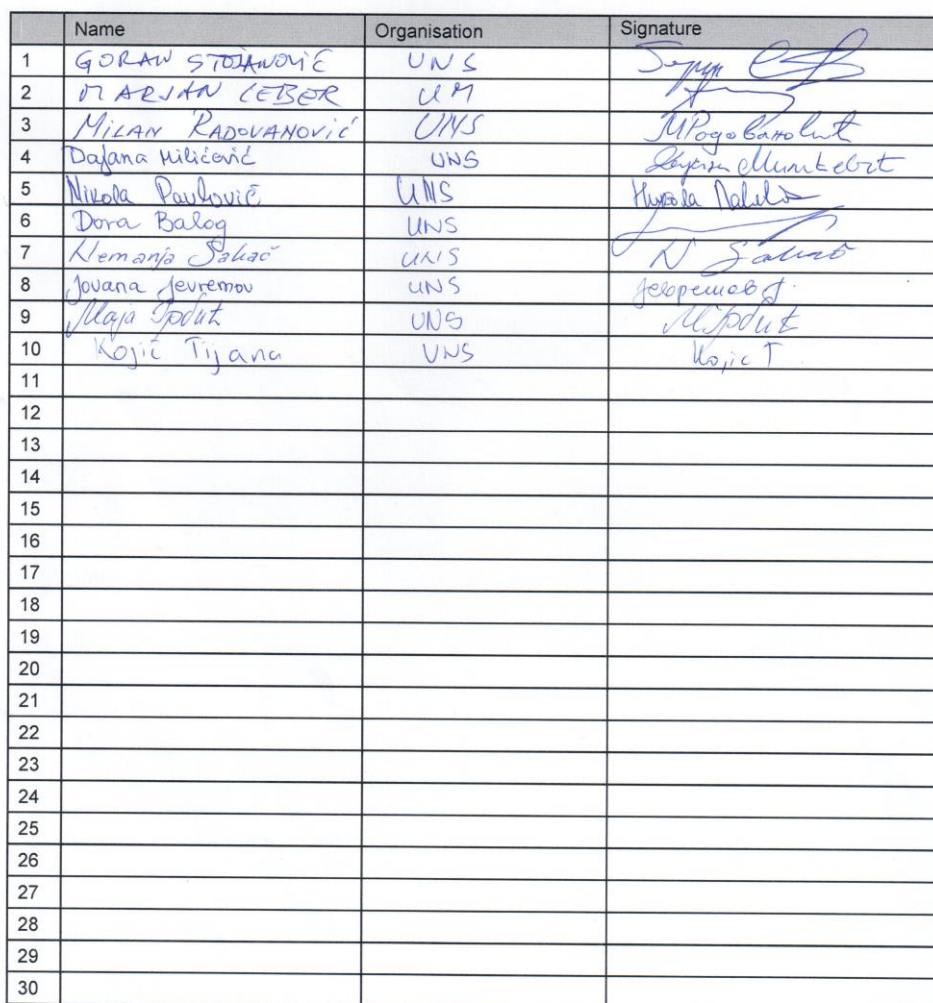 Name Organisation Signature
1 GORAN STOJANOVIĆ UNS
2 MARJAN LEBER UM
3 MILAN RADOVANOVIĆ UNS МРадовановић
4 Dajana Milićević UNS
5 Nikola Pavlović UNS Никола
6 Dora Balog UNS
7 Nemanja Sakač UNS N Sakač
8 Jovana Jevremov UNS
9 Maja UNS
10 Kojić Tijana UNS Kojić T
11
12
13
14
15
16
17
18
19
20
21
22
23
24
25
26
27
28
29
30